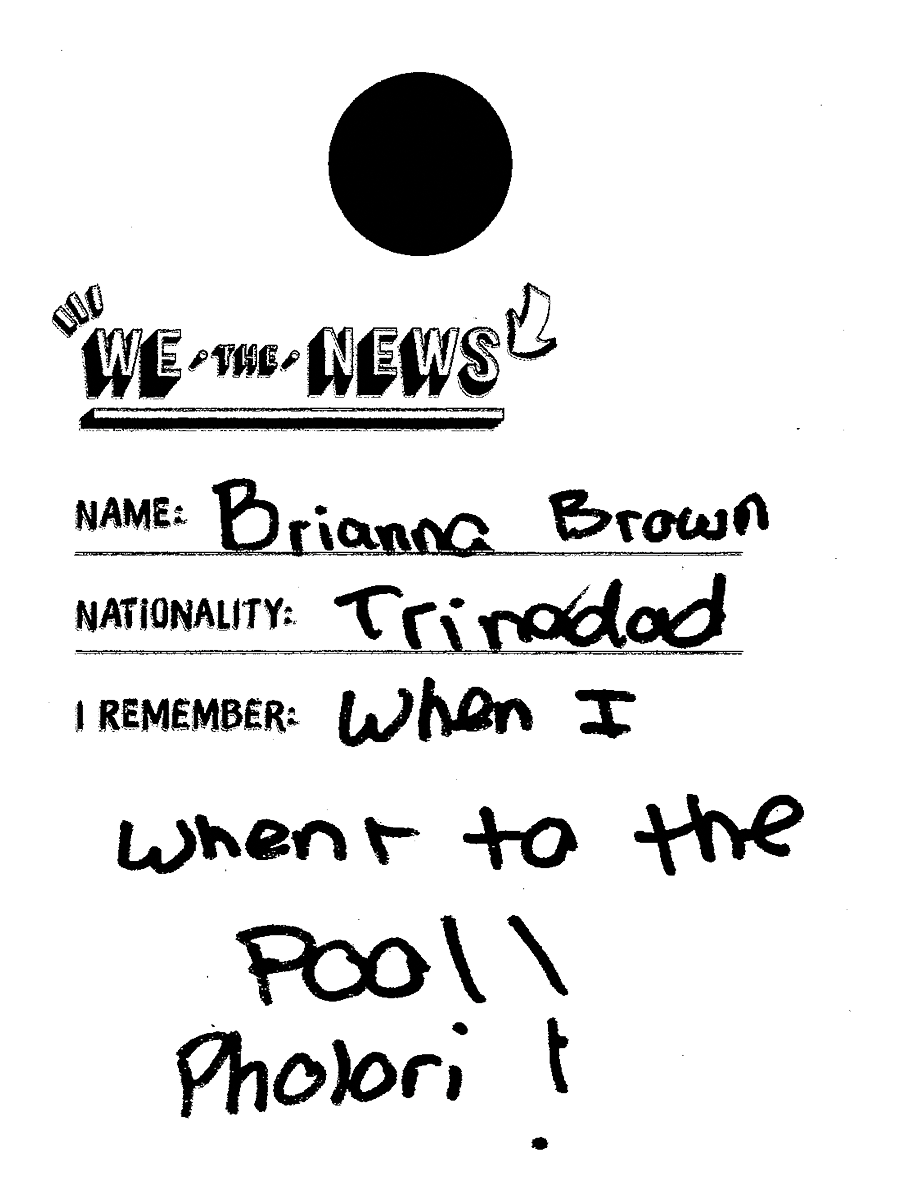 WE THE NEWS
NAME: Brianna Brown
NATIONALITY: Trinadad
I REMEMBER: When I
whent to the
Pool\
Pholori !